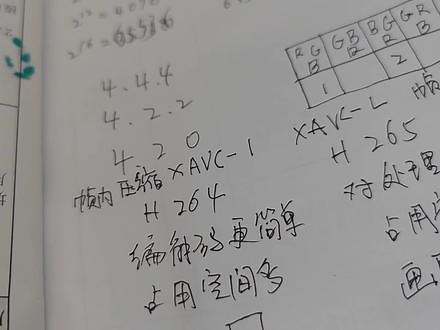 2¹² = 4096
2¹⁶ = 65536
4.4.4
4.2.2
4 2 0
R G B
G B R
B G R
G R B
1
2
帧内压缩 XAVC-I
H 264
编解码更简单
占用空间多
XAVC-L
帧
H 265
对处理
占用空
画